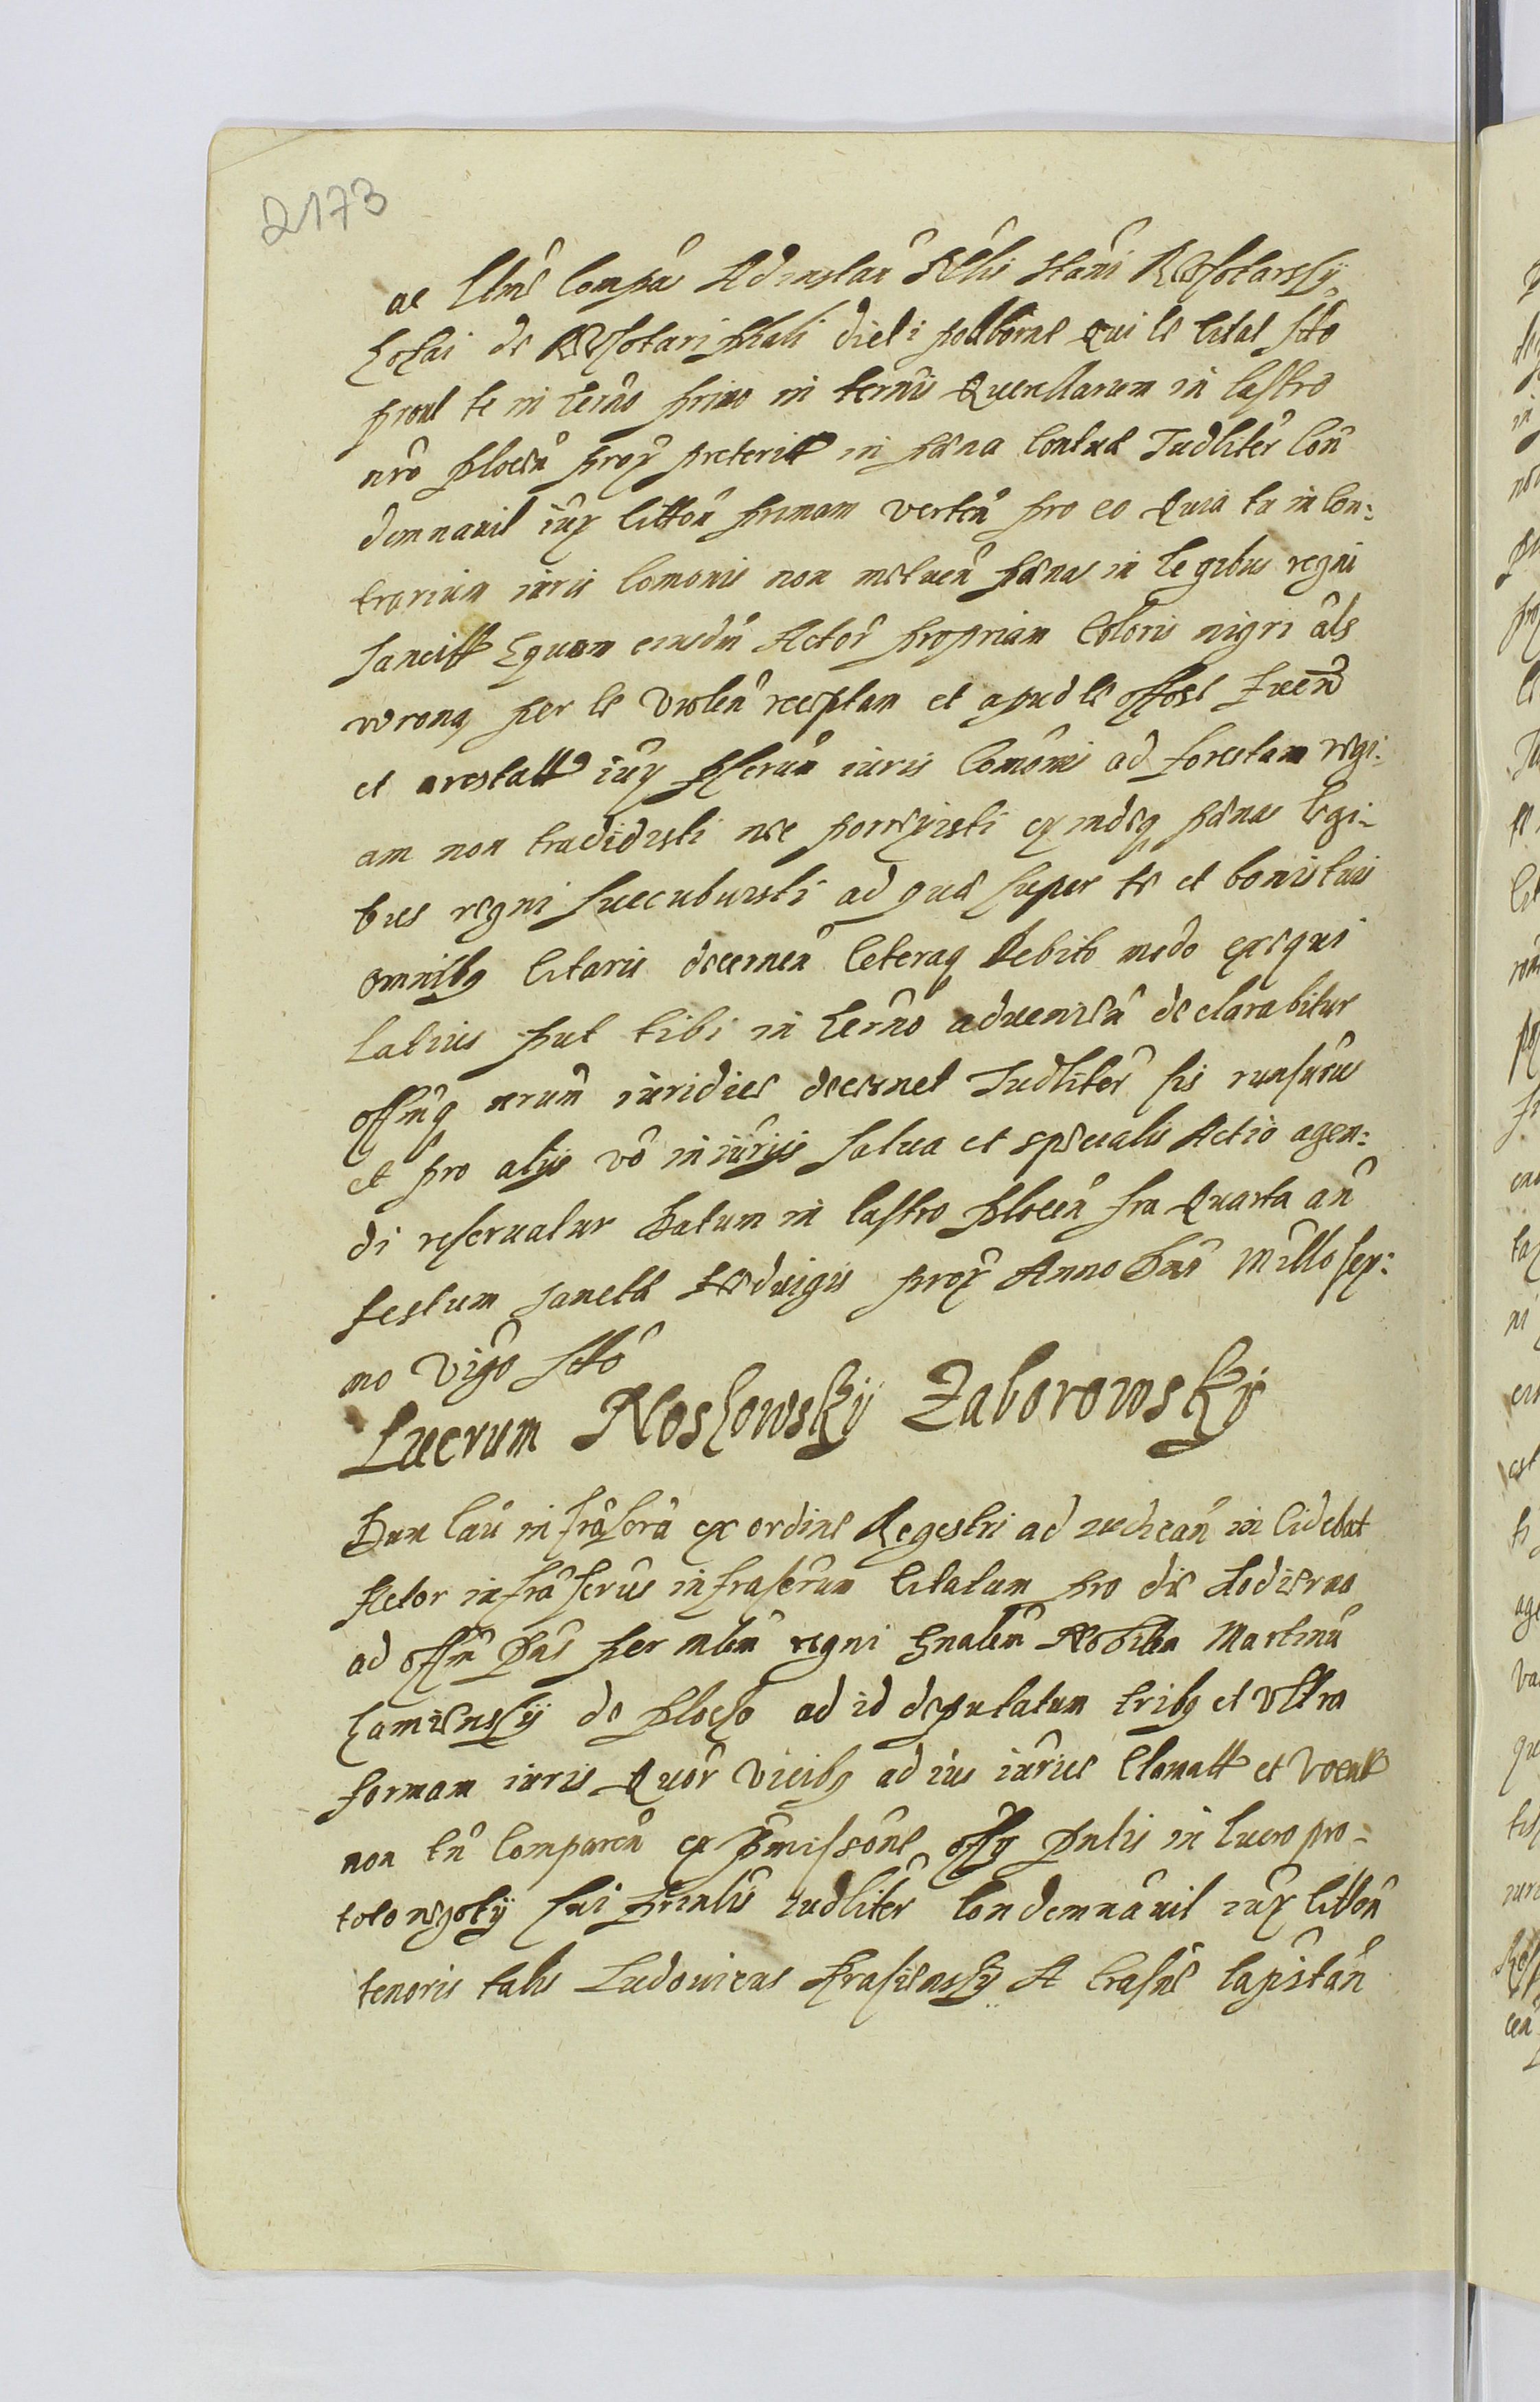 2173
ac ltme Compas Ad instan Nblis Stani
de dicti qui te citat scto
prout te in termo primo in termis Querellarum in Castro
nro Plocen prox preterit in pæna contuæ Judliter Con
demnauit iux litton primam verten pro eo Quia tu in Con:
trarium iuris Comonis non metuen pænas in legibus regni
sancitt Equam eiusdm Actor propriam Coloris nigri als
wrona per te violen receptam et apud te
et arestatt iux pscrum iuris Comonis ad forestam regi:
am non tradidisti nec porrexisti ex indeq pænas legi-
bus regni succubuisti ad quas super te et bonis tuis
omnibq Citaris decernen Ceteraq debito modo exequi
latius put tibi in termo advenien declarabitur
offmq nrum iuridice decernet Judliter sis rursurus
et pro alijs vo iniurijs salua et specialis Actio agen:
di reseruatur Datum in Castro Plocen fra Quarta an
festum sanctæ Hedvigis prox Anno Dni Millo sex:
mo vigo scto
Lucrum Noskowskÿ Zaborowskÿ
Dum Cau infrascra ex ordine Regestri ad iudican incidebat
Actor infrascrus infrascrum Citatum pro die Hodierna
ad offm Pns per mlem regni gnalem Nobilem Martinu
Kamienskÿ de Plocko ad id deputatum tribq et vltra
formam iuris Quor vicibq ad ius iurius Clamatt et vocat
non tn Comparen ex pmissone offq Pntis in lucro pro-
toto negotÿ sui Judliter Condemnauit iux litton
tenoris talis Ludouicus Krasienskÿ A Crasne Capitan